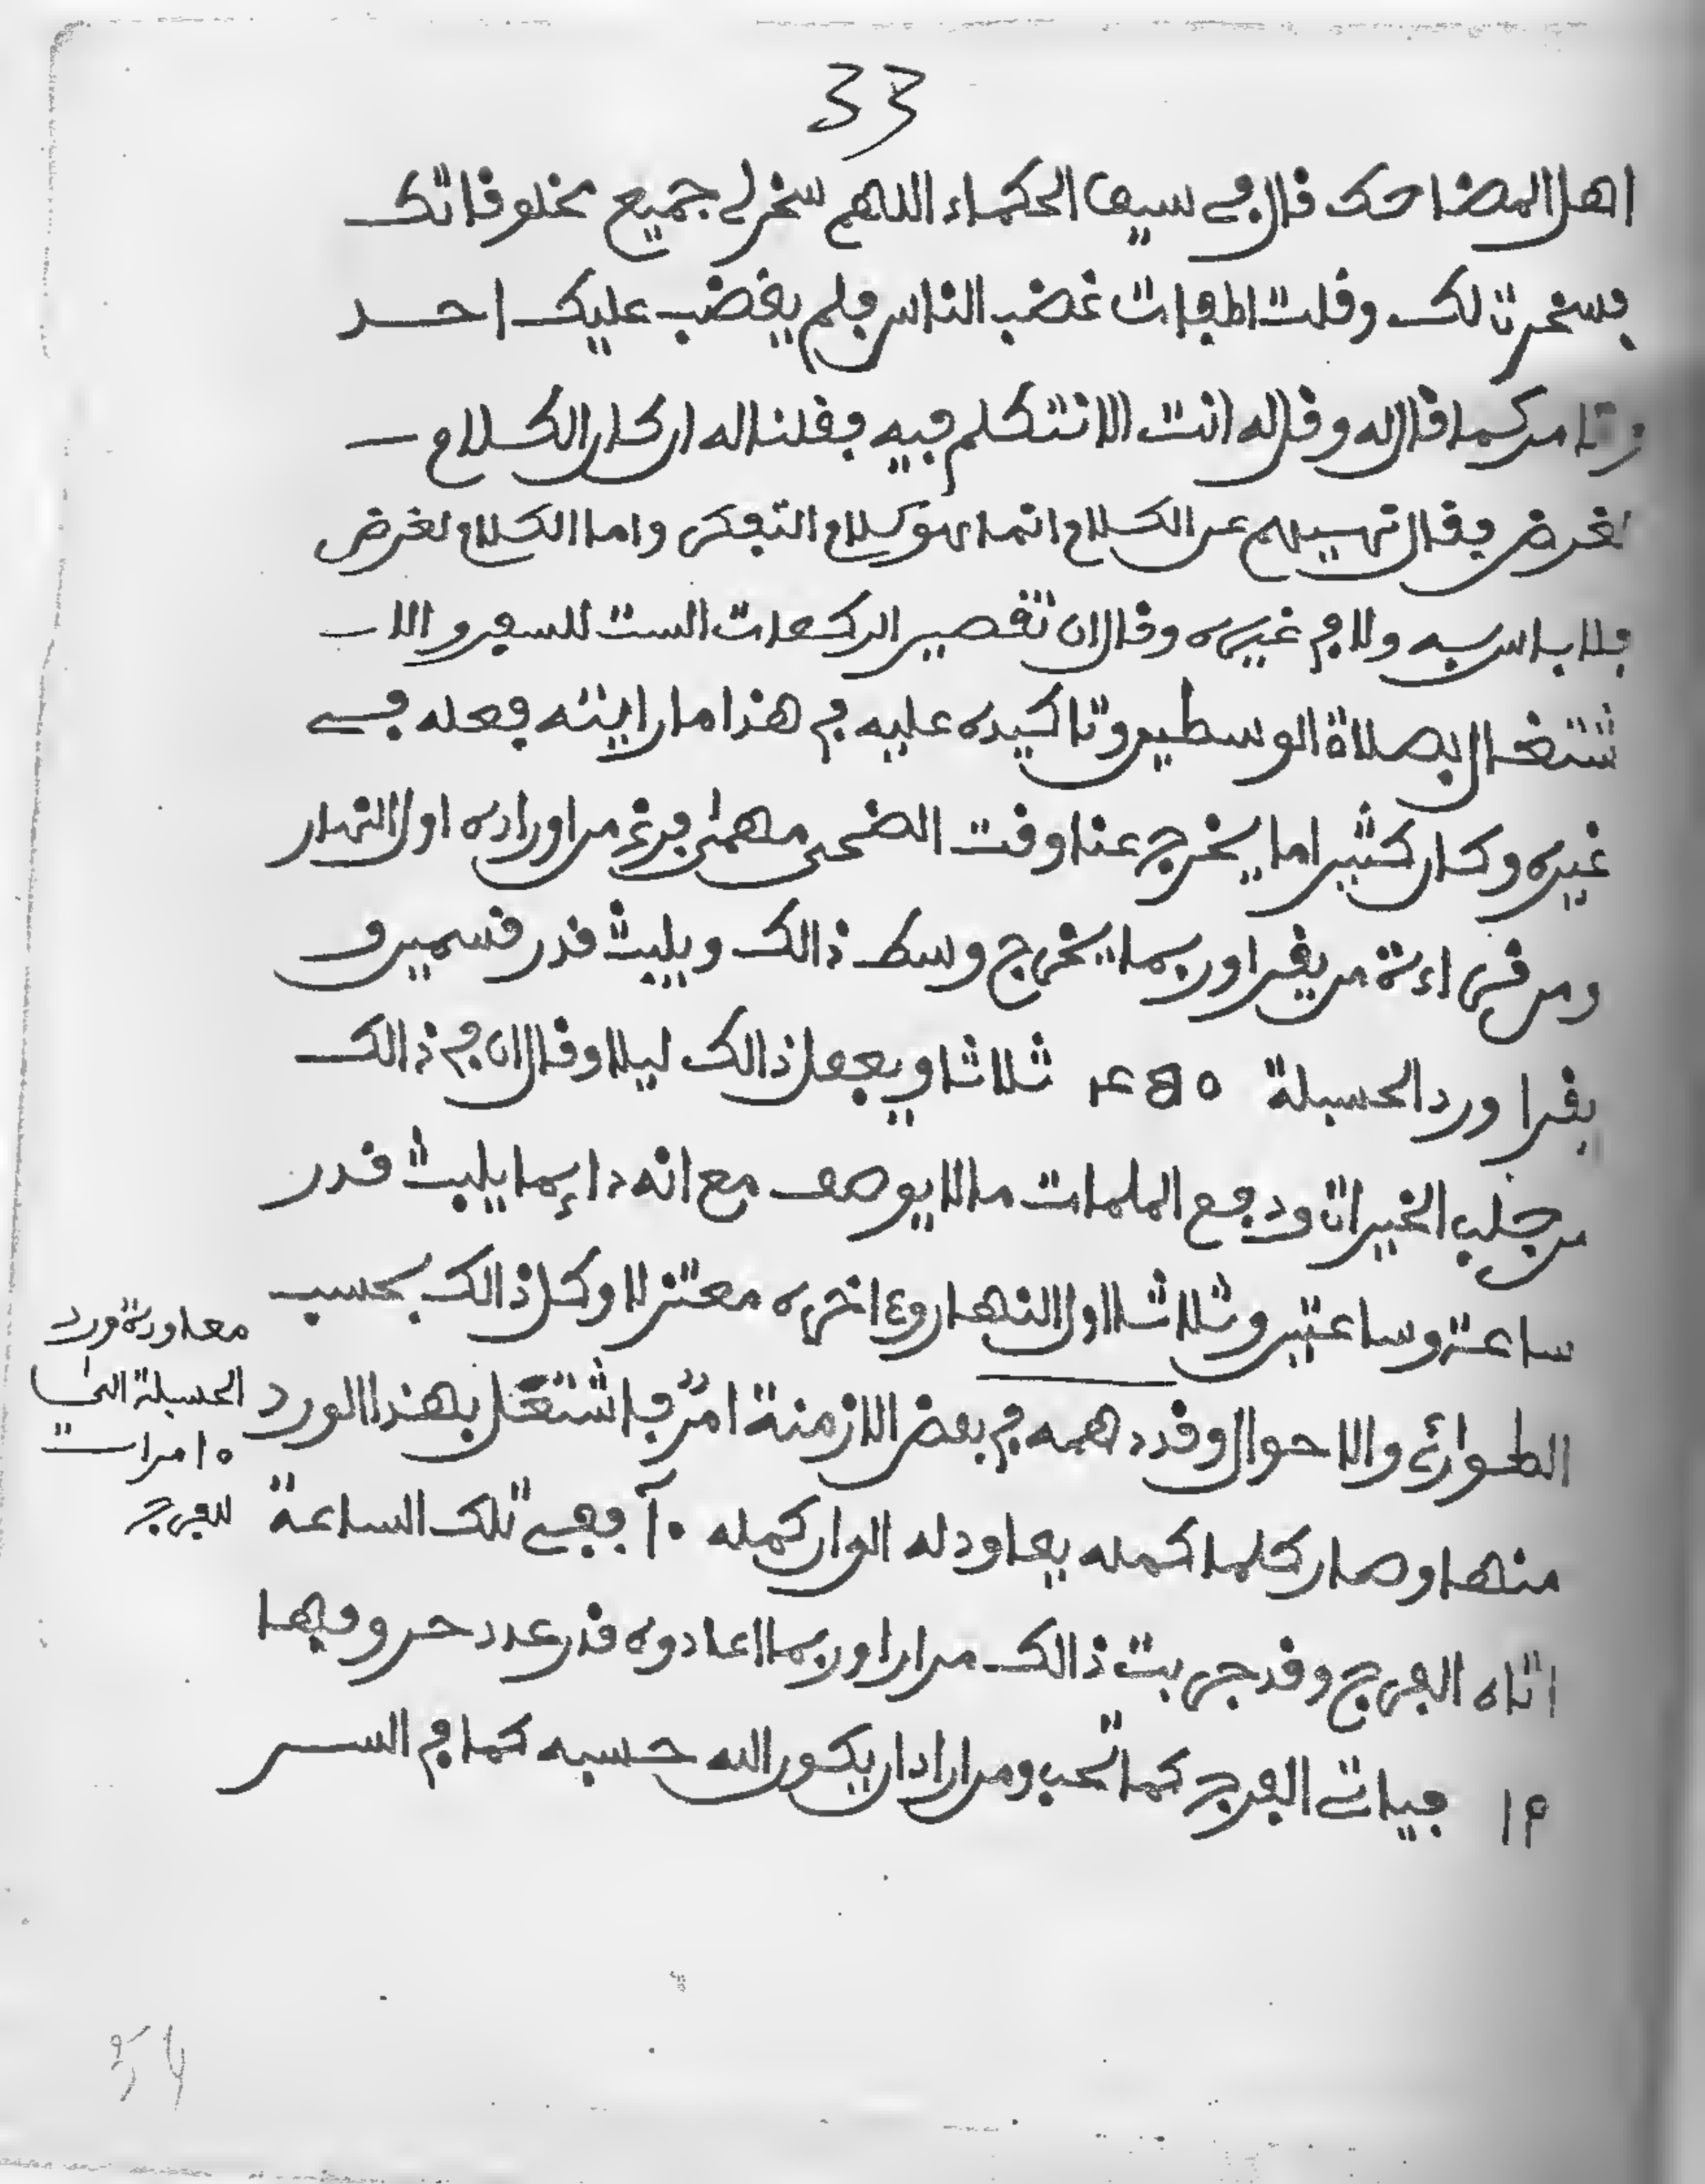 33
اهل المضاحك قال في سيف الحكماء اللهم سخر لي جميع مخلوقاتك
فسخرت لك وقلت اطفات غضب الناس فلم يغضب عليك احد
كما قال له وقال له انت الا نتكلم فيه فقلنا له ان كان الكلام
لغرض فقال نهسيهم عن الكلام انما هو كلام التفكر واما الكلام لغرض
فلا باس به ولا في غيره وقال ان تقصير الركعات الست للسفر والا
شتغال بصلاة الوسطين وتاكيده عليه في هذا ما رايته فعله في
غيره وكان كثيرا ما يخرج عنا وقت الضحى مهمى فرغ من اوراده اول النهار
ومن قراءة من يقرا وربما يخرج وسط ذالك ويلبث قدر قسمين و
يقرا ورد الحسبلة ثلاثا ويفعل ذالك ليلا وقال ان في ذالك
من جلب الخيرات ودفع الملمات ما لا يوصف مع انه دايما يلبث قدر
ساعة وساعتين وثلاثا اول النهار وء اخره معتزلا وكل ذالك بحسب
الطوارئ والاحوال وقد دهمه في بعض الازمنة امر فاشتغل بهذا الورد
منها وصار كلما كمله يعاود له الى ان كمله ١٠ ففي تلك الساعة
اتاه الفرج وقد جربت ذالك مرارا وربما اعادوه قدر عدد حروفها
١٩ فياتي الفرج كما تحب ومن اراد ان يكون الله حسبه كما في السر
معاودة ورد
الحسبلة الى
١٠ مرات
للفرج
34